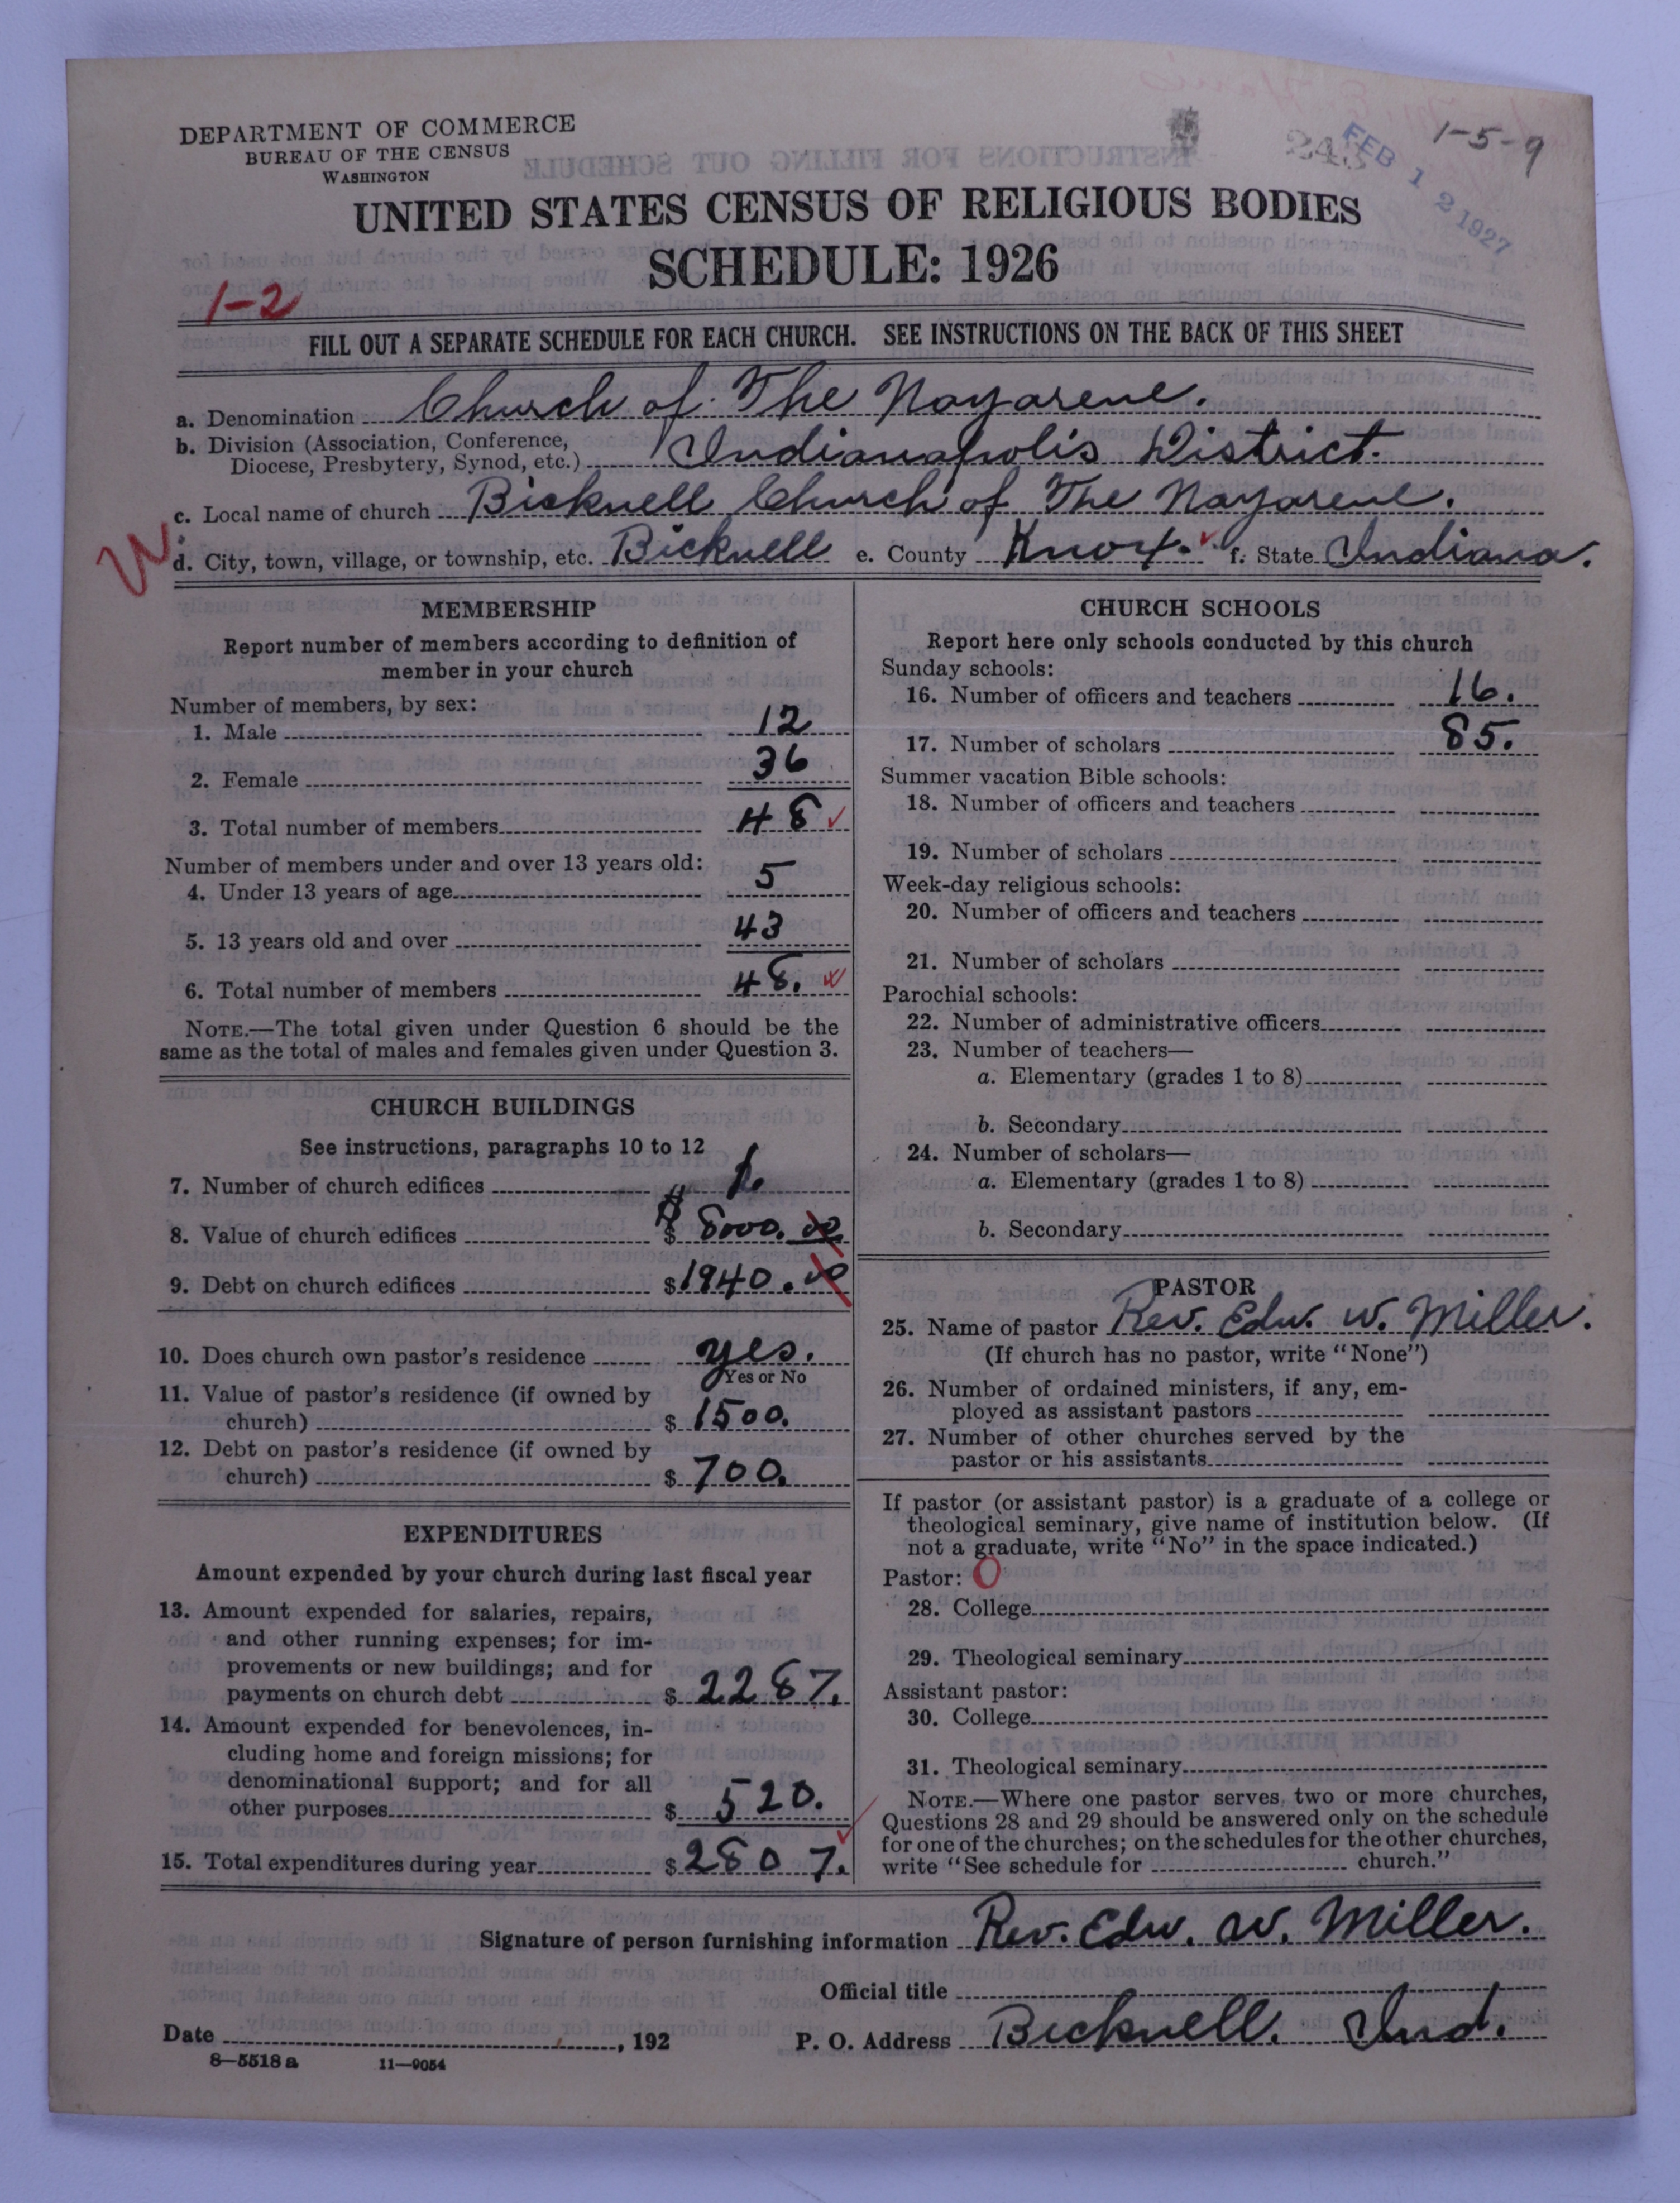 DEPARTMENT OF COMMERCE
BUREAU OF THE CENSUS
WASHINGTON
1-5-9
FEB 12 1927
UNITED STATES CENSUS OF RELIGIOUS BODIES
SCHEDULE: 1926
1-2
FILL OUT A SEPARATE SCHEDULE FOR EACH CHURCH. SEE INSTRUCTIONS ON THE BACK OF THIS SHEET
a. Denomination Church of The Nazarene.
b. Division (Association, Conference,
Diocese, Presbytery, Synod, etc.) Indianapolis District.
c. Local name of church Bicknell Church of The Nazarene.
W
d. City, town, village, or township, etc. Bicknell e. County Knox. f. State Indiana.
MEMBERSHIP
Report number of members according to definition of
member in your church
Number of members, by sex:
1. Male 12
2. Female 36
3. Total number of members 48
Number of members under and over 13 years old:
4. Under 13 years of age 5
5. 13 years old and over 43
6. Total number of members 48.
NOTE.—The total given under Question 6 should be the
same as the total of males and females given under Question 3.
CHURCH BUILDINGS
See instructions, paragraphs 10 to 12
7. Number of church edifices 1.
8. Value of church edifices $ 8000.00
9. Debt on church edifices $1940.00
10. Does church own pastor's residence yes.
Yes or No
11. Value of pastor's residence (if owned by
church) $ 1500.
12. Debt on pastor's residence (if owned by
church) $ 700.
EXPENDITURES
Amount expended by your church during last fiscal year
13. Amount expended for salaries, repairs,
and other running expenses; for im-
provements or new buildings; and for
payments on church debt $ 2287.
14. Amount expended for benevolences, in-
cluding home and foreign missions; for
denominational support; and for all
other purposes $ 520.
15. Total expenditures during year $2807.
CHURCH SCHOOLS
Report here only schools conducted by this church
Sunday schools:
16. Number of officers and teachers 16.
17. Number of scholars 85.
Summer vacation Bible schools:
18. Number of officers and teachers
19. Number of scholars
Week-day religious schools:
20. Number of officers and teachers
21. Number of scholars
Parochial schools:
22. Number of administrative officers
23. Number of teachers—
a. Elementary (grades 1 to 8)
b. Secondary
24. Number of scholars—
a. Elementary (grades 1 to 8)
b. Secondary
PASTOR
25. Name of pastor Rev. Edw. W. Miller.
(If church has no pastor, write "None")
26. Number of ordained ministers, if any, em-
ployed as assistant pastors
27. Number of other churches served by the
pastor or his assistants
If pastor (or assistant pastor) is a graduate of a college or
theological seminary, give name of institution below. (If
not a graduate, write "No" in the space indicated.)
Pastor: O
28. College
29. Theological seminary
Assistant pastor:
30. College
31. Theological seminary
NOTE.—Where one pastor serves two or more churches,
Questions 28 and 29 should be answered only on the schedule
for one of the churches; on the schedules for the other churches,
write "See schedule for church."
Signature of person furnishing information Rev. Edw. W. Miller.
Official title
Date , 192 P. O. Address Bicknell. Ind.
8—5518 a 11—9054